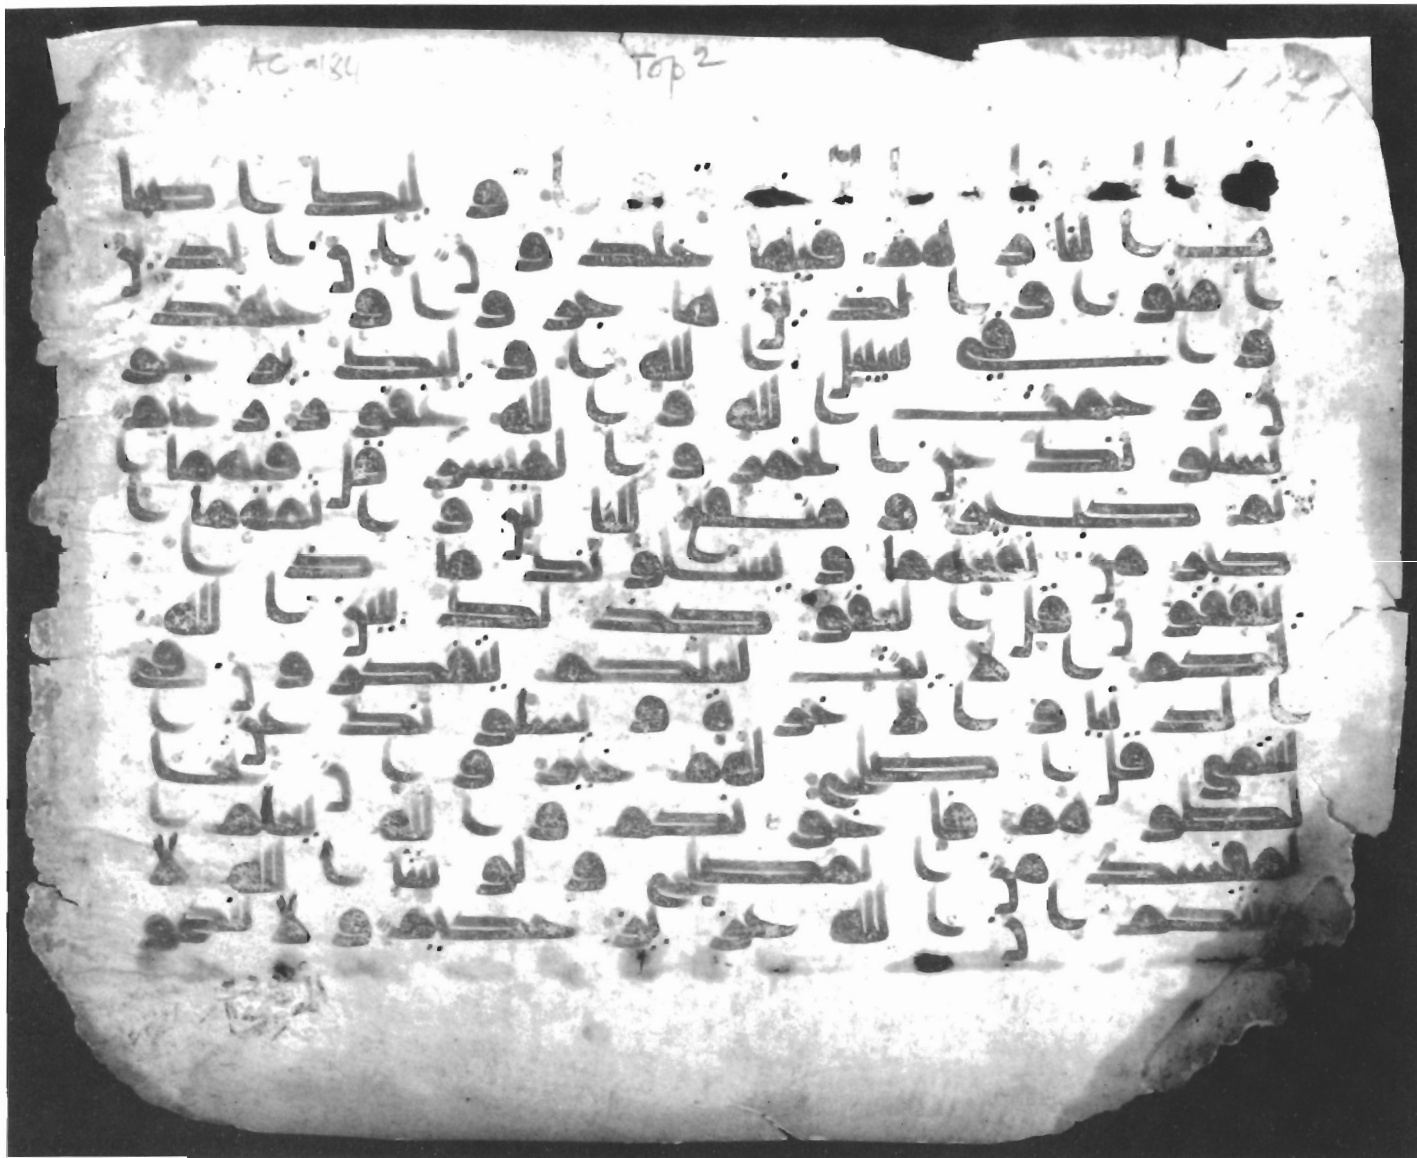 Top 2
وا لاخرة واولئك اصحا
ب النار هم فيها خلدون ان الذين
امنوا والذين هاجروا وجهد
وا في سبيل الله اولئك يرجو
ن رحمت الله والله غفور رحيم
يسلونك عن الخمر والميسر قل فيهما ا
ثم كبير ومنفع للناس واثمهما ا
كبر من نفعهما ويسلونك ماذا
ينفقون قل العفو كذلك يبين الله
لكم الايت لعلكم تتفكرون في
الدنيا والاخرة ويسلونك عن ا
ليتمى قل اصلح لهم خير وان تخا
لطوهم فاخونكم والله يعلم ا
لمفسد من المصلح ولو شا الله لا
عنتكم ان الله عزيز حكيم ولا تنكحو